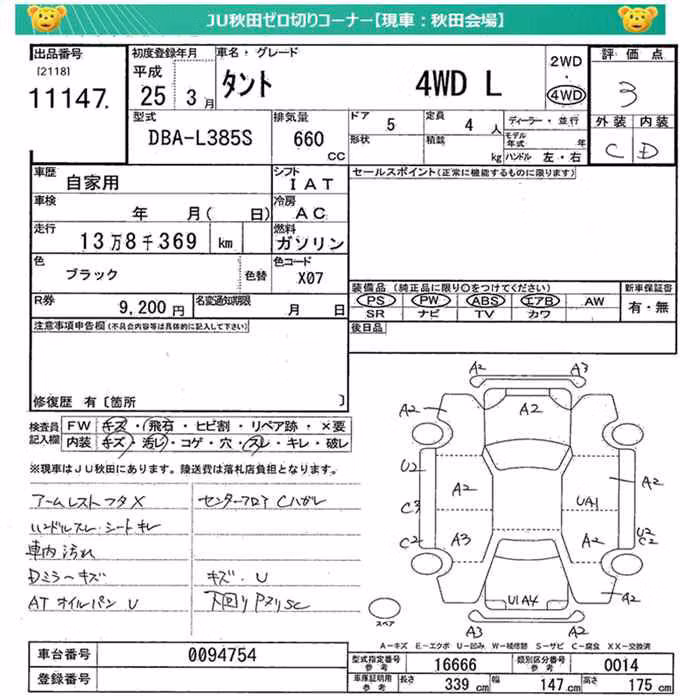 JU秋田ゼロ切りコーナー【現車:秋田会場】
出品番号 初度登録年月 車名・グレード 2WD 評価点
[2118] 平成 タント 4WD L ・ 3
11147. 25 3月 4WD 外装 内装
型式 排気量 ドア 5 定員 4人 ディーラー・並行 C D
DBA-L385S 660cc 形状 積載 kg モデル年式 年
ハンドル 左・右
車歴 自家用 シフト IAT セールスポイント(正常に機能するものに限ります)
車検 年 月( 日) 冷房 AC
走行 13万8千369 km 燃料 ガソリン
色 ブラック 色替 色コード X07
装備品(純正品に限り○をつけてください) 新車保証書
R券 9,200円 名変通知期限 月 日 PS PW ABS エアB AW 有・無
SR ナビ TV カワ
注意事項申告欄(不具合内容等は具体的に記入して下さい) 後日品
修復歴 有〔箇所 〕
検査員記入欄 FW キズ・飛石・ヒビ割・リペア跡・×要
内装 キズ・汚れ・コゲ・穴・スレ・キレ・破レ
※現車はJU秋田にあります。陸送費は落札店負担となります。
アームレストフタX センターフロア Cハガレ
ハンドルスレ・シートキレ
車内汚れ
Dミラーキズ キズ・U
ATオイルパンU 下回りPスリSC
A2 A3
A2 A2 A2
U2 A2 UA1 A2
C3
C2 A3 A2 U2
C2
U1A4 A2
A3 A2
スペア
A-キズ E-エクボ U-凹み W-補修跡 S-サビ C-腐食 XX-交換済
車台番号 0094754 型式指定番号 参考 16666 類別区分番号 参考 0014
登録番号 車庫証明用 参考 長さ 339cm 幅 147cm 高さ 175cm